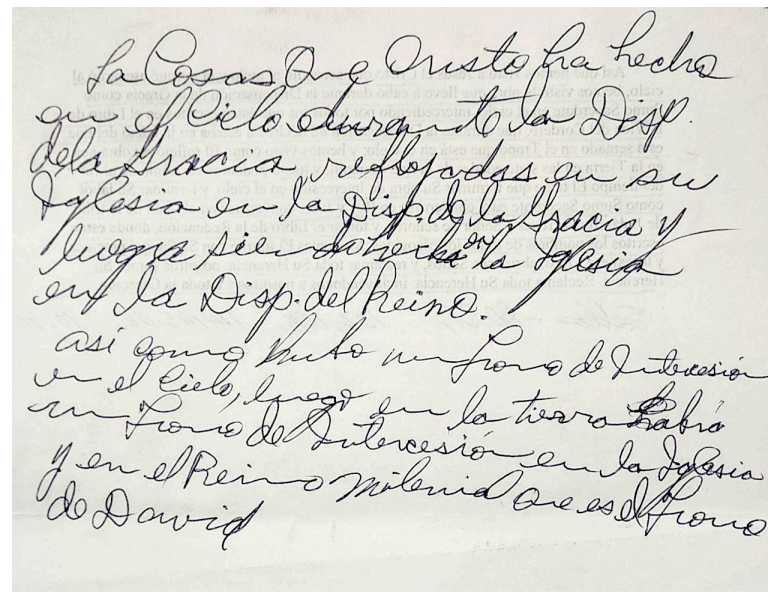 La Cosas Que Cristo ha hecho
en el Cielo durante la Disp.
de la Gracia reflejadas en su
Iglesia en la Disp. de la Gracia y
luego siendo hechas en la Iglesia
en la Disp. del Reino.
así como hubo un Trono de Intercesión
en el Cielo, luego en la tierra habría
un Trono de Intercesión en la Iglesia
y en el Reino milenial que es el Trono
de David